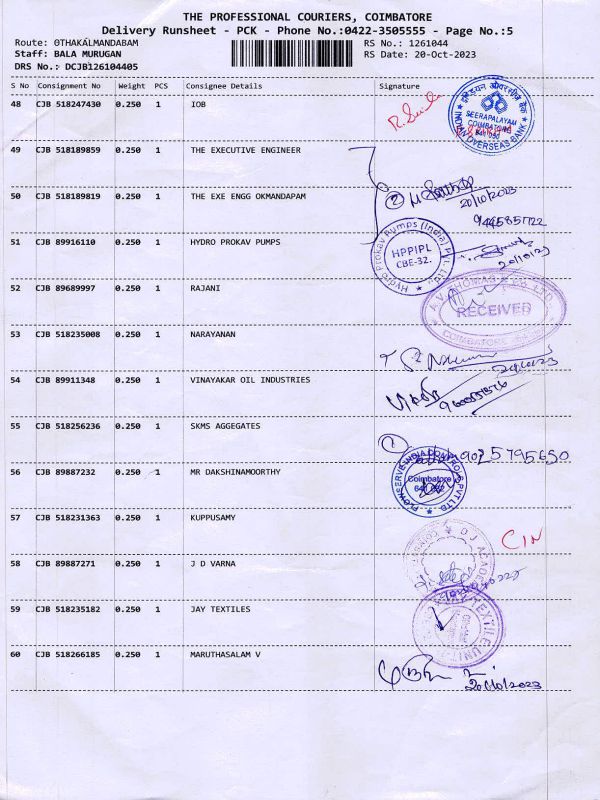 THE PROFESSIONAL COURIERS, COIMBATORE
Delivery Runsheet - PCK - Phone No.:0422-3505555 - Page No.:5
Route: OTHAKALMANDABAM RS No.: 1261044
Staff: BALA MURUGAN RS Date: 20-Oct-2023
DRS No.: DCJB126104405
S No Consignment No Weight PCS Consignee Details Signature
48 CJB 518247430 0.250 1 IOB
SEERAPALAYAM
COIMBATORE
INDIAN OVERSEAS BANK
49 CJB 518189859 0.250 1 THE EXECUTIVE ENGINEER
50 CJB 518189819 0.250 1 THE EXE ENGG OKMANDAPAM
2
20/10/2023
51 CJB 89916110 0.250 1 HYDRO PROKAV PUMPS
Hydro Prokav Pumps (India) Pvt. Ltd.
HPPIPL
CBE-32.
20/10/23
52 CJB 89689997 0.250 1 RAJANI
A.V. THOMAS & CO LTD.
RECEIVED
COIMBATORE
53 CJB 518235008 0.250 1 NARAYANAN
54 CJB 89911348 0.250 1 VINAYAKAR OIL INDUSTRIES
55 CJB 518256236 0.250 1 SKMS AGGEGATES
9025795650
56 CJB 89887232 0.250 1 MR DAKSHINAMOORTHY
FLOWSERVE INDIA CONTROLS PVT LTD.
Coimbatore
57 CJB 518231363 0.250 1 KUPPUSAMY
58 CJB 89887271 0.250 1 J D VARNA
59 CJB 518235182 0.250 1 JAY TEXTILES
TEXTILE UNIT
60 CJB 518266185 0.250 1 MARUTHASALAM V
20/10/2023